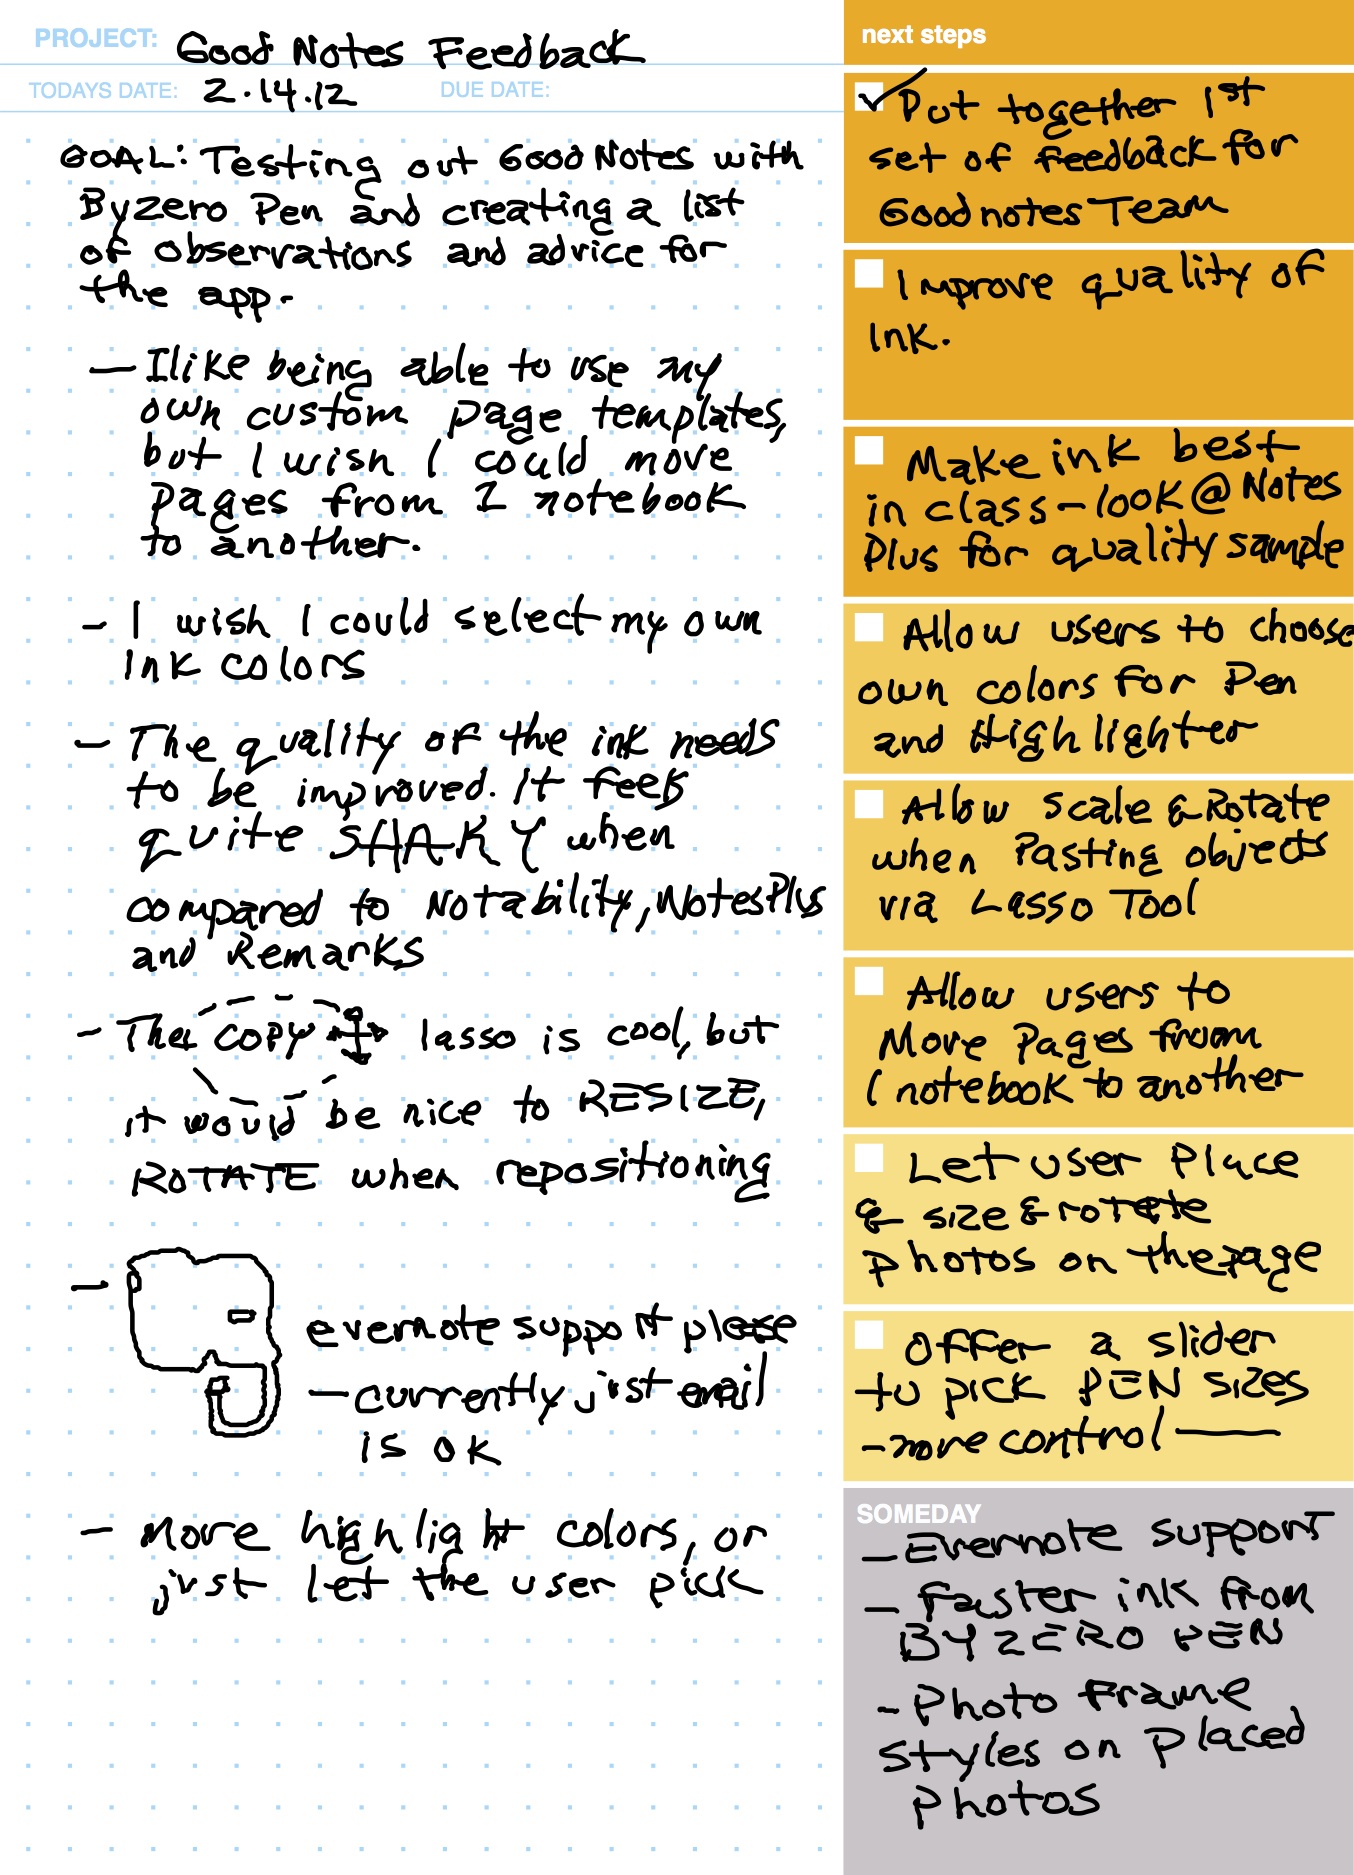 PROJECT: Good Notes Feedback
TODAYS DATE: 2.14.12 DUE DATE:
GOAL: Testing out GoodNotes with
Byzero Pen and creating a list
of observations and advice for
the app.
- I like being able to use my
own custom page templates,
but I wish I could move
pages from 1 notebook
to another.
- I wish I could select my own
ink colors
- The quality of the ink needs
to be improved. It feels
quite SHAKY when
compared to Notability, NotesPlus
and Remarks
- The COPY lasso is cool, but
it would be nice to RESIZE,
ROTATE when repositioning
- evernote support please
- currently just email
is ok
- More highlight colors, or
just let the user pick
next steps
Put together 1st
set of feedback for
Goodnotes Team
Improve quality of
Ink.
Make ink best
in class - look @ Notes
Plus for quality sample
Allow users to choose
own colors for Pen
and Highlighter
Allow Scale & Rotate
when Pasting objects
via Lasso Tool
Allow users to
Move Pages from
1 notebook to another
Let user Place
& size & rotate
photos on the page
Offer a slider
to pick PEN SIZES
- more control —
SOMEDAY
- Evernote support
- Faster ink from
BYZERO PEN
- Photo Frame
styles on placed
photos